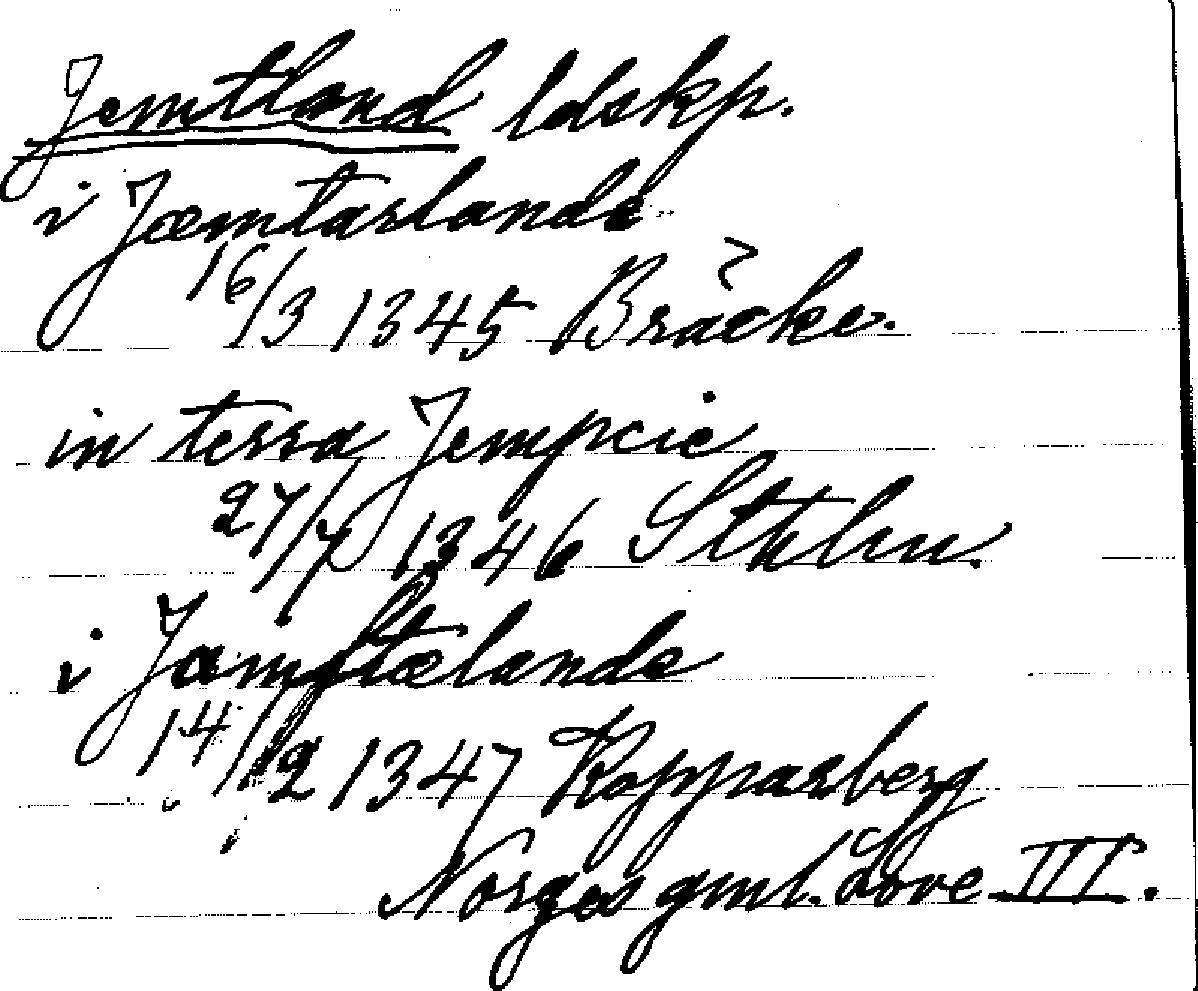 Jemtland ldskp.
i Jæmtarlande
16/3 1345 Bräcke.
in terra Jempcie
27/7 1346 Sthlm.
i Jamptælande
14/12 1347 Kopparberg
Norges gml. Love III.